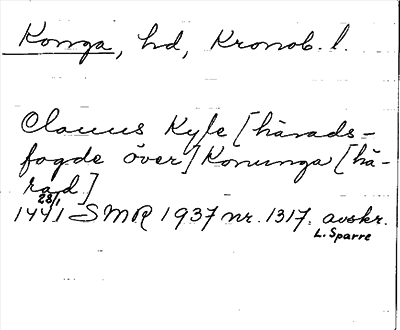 Konga, hd, Kronob. l.
Clauus Kyle [härads-
fogde över] Konunga [hä-
rad]
28/1
1441 SMR 1937 nr. 1317. avskr.
L. Sparre